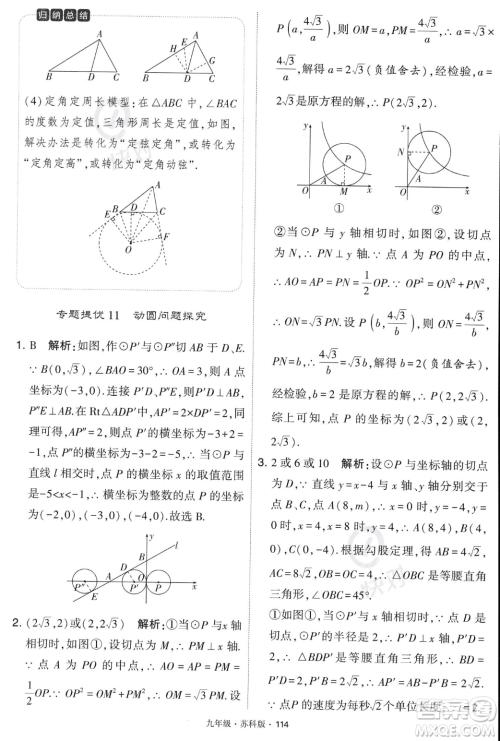 归纳总结
A
B D C
A
H G E
B D C
(4)定角定周长模型:在△ABC 中,∠BAC
的度数为定值,三角形周长是定值,如图,
解决办法是转化为“定弦定角”,或转化为
“定角定高”,或转化为“定角动弦”.
A
B D C
E F
O
专题提优11 动圆问题探究
1. B 解析:如图,作⊙P′与⊙P″切 AB 于 D、E.
∵ B(0,√3),∠BAO=30°,∴ 可得 A 点
坐标为(-3,0).连接 P′D、P″E,则 P′D⊥AB,
P″E⊥AB.在 Rt△ADP′中,AP′=2P′D=2,同
理可得,AP″=2,则点 P′的横坐标为-3+2=
-1,点 P″的横坐标为-3-2=-5.∴ 当⊙P 与
直线 l 相交时,点 P 的横坐标 x 的取值范围
是-5<x<-1,∴ 横坐标为整数的点 P 的横坐
标为-2、-3、-4,故选 B.
y l
B
D
P″ A P′ O P x
E
2. (2√3,2)或(2,2√3) 解析:①当⊙P 与 x 轴
相切时,如图①,设切点为 M,∴ PM⊥x 轴.
∵ 点 A 为 PO 的中点,∴ AO=AP=PM=
1/2 OP. ∵ OP²=OM²+PM²,∴ OM=√3PM. 设
P(a, 4√3/a), 则 OM=a, PM=4√3/a, ∴ a=√3×
4√3/a,解得 a=2√3(负值舍去),经检验,a=
2√3是原方程的解,∴ P(2√3,2).
y P A O M x
①
y N P A O x
②
②当⊙P 与 y 轴相切时,如图②,设切点
为 N,∴ PN⊥y 轴. ∵ 点 A 为 PO 的中点,
∴ AO=AP=PN=1/2 OP. ∵ OP²=ON²+
PN²,∴ ON=√3PN. 设 P(b, 4√3/b),则 PN=b,
ON=4√3/b,∴ 4√3/b=√3b,解得 b=2(负值舍去),
经检验,b=2 是原方程的解,∴ P(2,2√3).
综上可知,点 P 的坐标为(2√3,2)或(2,
2√3).
3. 2 或 6 或 10 解析:设⊙P 与坐标轴的切点
为 D,∵ 直线与 x 轴、y 轴分别交于
点 B、C,点 A(8,m),∴ x=0 时,y=-4,y=0
时,x=4,x=8 时,y=4,∴ A(8,4),B(4,
0),C(0,-4).根据勾股定理,得 AB=4√2,
AC=8√2,OB=OC=4,∴ △OBC 是等腰直角
三角形,∠OBC=45°.
①如图①,当⊙P′与 x 轴相切时,∵ 点 D 是
切点,⊙P′的半径是 2,∴ P′D⊥x 轴,P′D=
2,∴ △BDP′是等腰直角三角形,∴ BD=
P′D=2,P′B=2√2,∴ AP′=AB-P′B=2√2.
∵ 点P的速度为每秒2√2个单位长度,∴ t=2.
九年级·苏科版 114